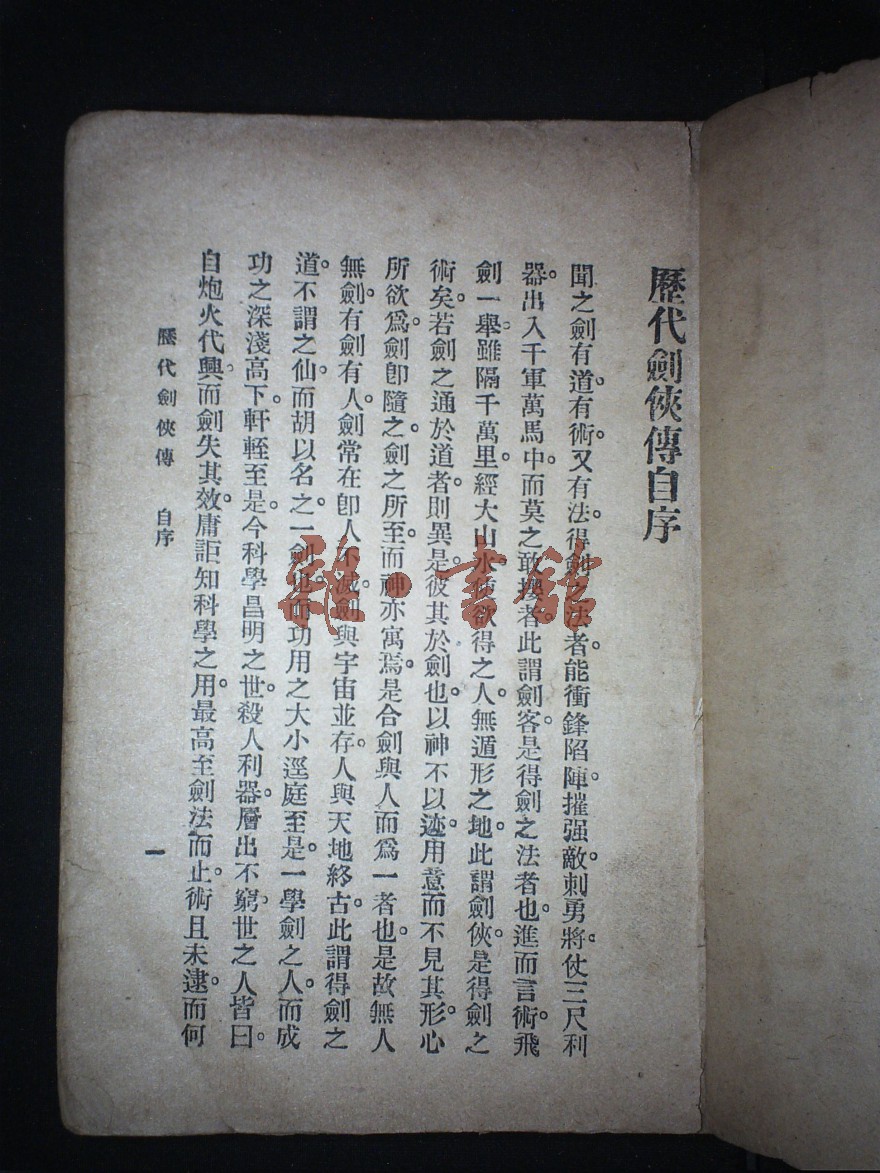 歷代劍俠傳自序
聞之劍有道。有術。又有法。得劍之法者。能衝鋒陷陣。摧强敵。刺勇將。仗三尺利
器。出入千軍萬馬中。而莫之敢攖者。此謂劍客。是得劍之法者也。進而言術。飛
劍一舉。雖隔千萬里。經大山水。使欲得之人。無遁形之地。此謂劍俠。是得劍之
術矣。若劍之通於道者。則異是。彼其於劍也。以神不以迹。用意而不見其形。心
所欲爲。劍卽隨之。劍之所至。而神亦寓焉。是合劍與人而爲一者也。是故無人
無劍。有劍有人。劍常在卽人不滅。劍與宇宙並存。人與天地終古。此謂得劍之
道。不謂之仙。而胡以名之。一劍也。而功用之大小逕庭至是。一學劍之人。而成
功之深淺高下。軒輊至是。今科學昌明之世。殺人利器。層出不窮。世之人皆曰。
自炮火代興。而劍失其效。庸詎知科學之用。最高至劍法而止。術且未逮。而何
歷代劍俠傳 自序
一
雅·書館